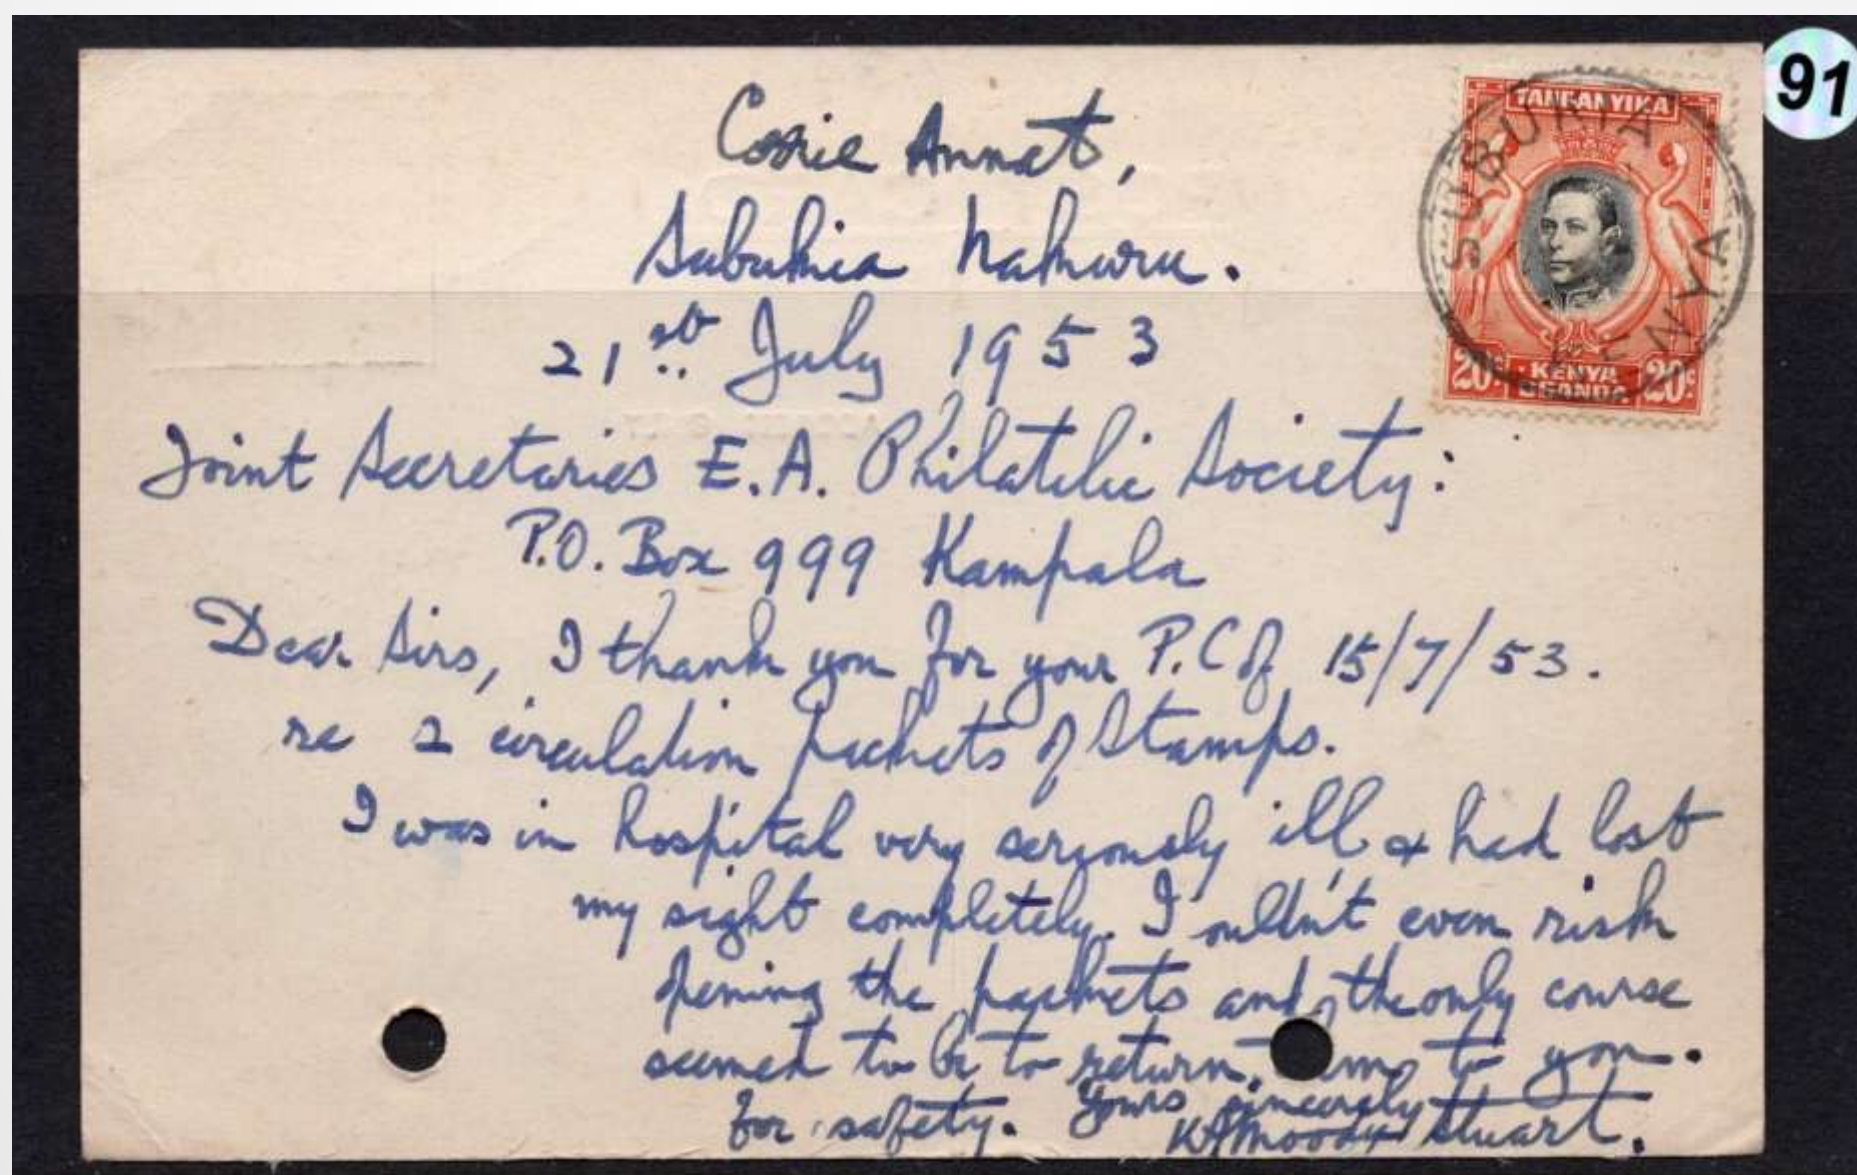 91
TANGANYIKA
SUBUKIA
KENYA
20c KENYA UGANDA 20c
Annat,
Subukia Nakuru.
21st July 1953
Joint Secretaries E.A. Philatelic Society:
P.O. Box 999 Kampala
Dear Sirs, I thank you for your P.C of 15/7/53.
re 2 circulation packets of Stamps.
I was in hospital very seriously ill & had lost
my sight completely. I even risk
opening the packets and, the only course
seemed to be to return, to you.
for safety. Yours sincerely
Stuart.